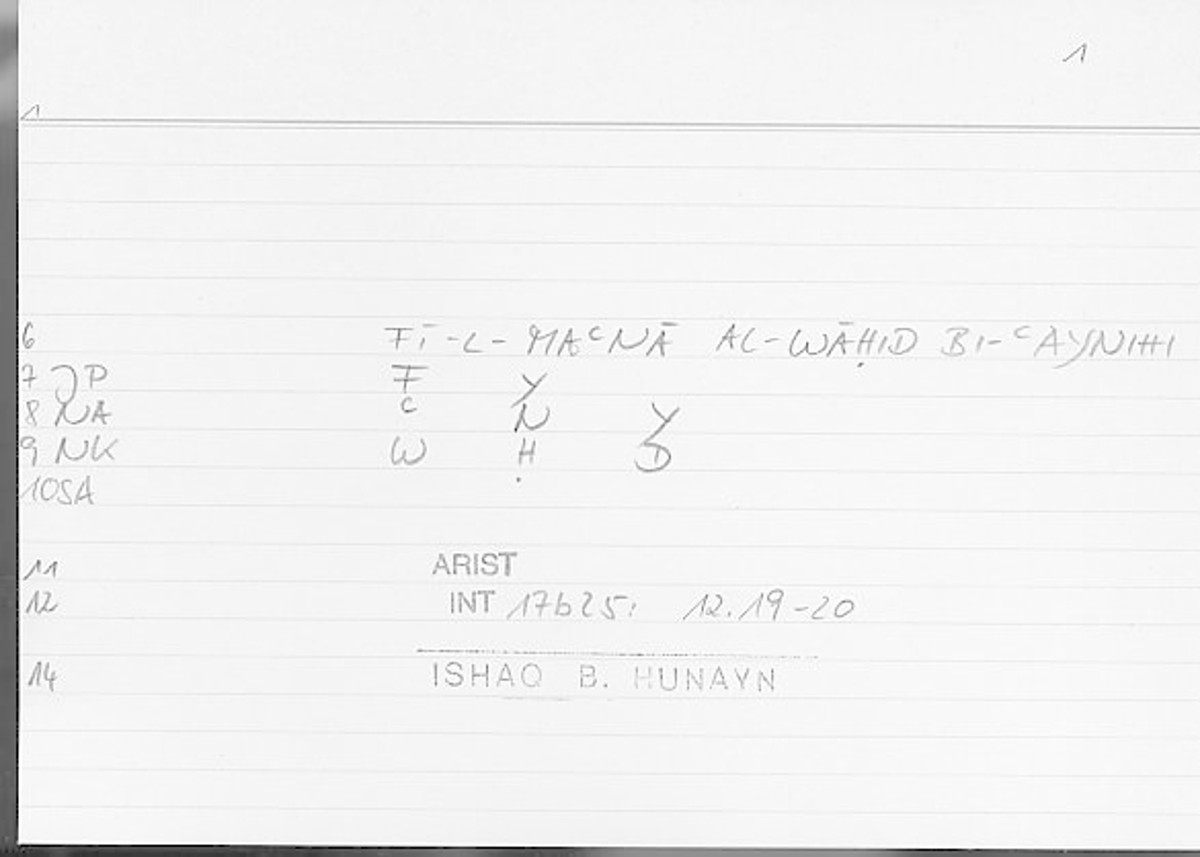 1
1
6 FĪ-L-MAᶜNĀ AL-WĀḤID BI-ᶜAYNIHI
7 JP F Y
8 NA ᶜ N Y
9 NK W Ḥ D
10SA
11 ARIST
12 INT 17b25; 12.19-20
14 ISHAQ B. HUNAYN